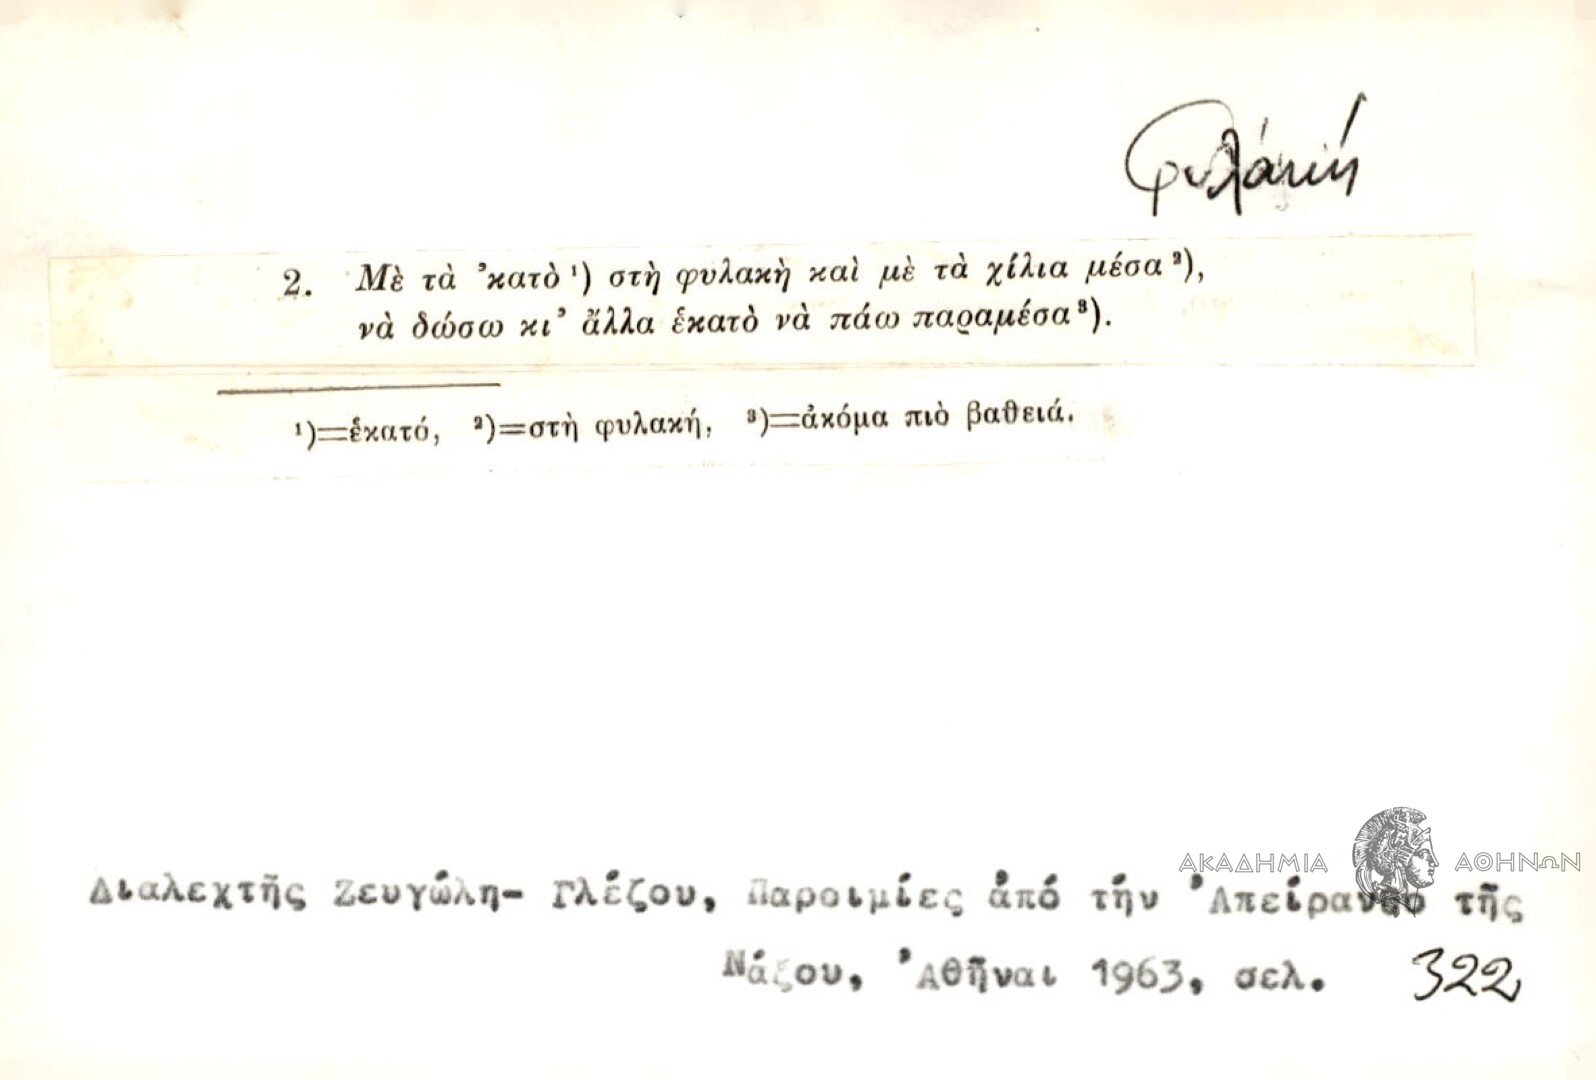 φυλάκή
2. Μὲ τὰ ’κατὸ¹) στὴ φυλακὴ καὶ μὲ τὰ χίλια μέσα²),
νὰ δώσω κι’ ἄλλα ἑκατὸ νὰ πάω παραμέσα³).
¹)=ἑκατό, ²)=στὴ φυλακή, ³)=ἀκόμα πιὸ βαθειά.
ΑΚΑΔΗΜΙΑ ΑΘΗΝΩΝ
Διαλεχτῆς Ζευγώλη- Γλέζου, Παροιμίες ἀπό τήν ’Απείρανθο τῆς
Νάξου, ’Αθῆναι 1963, σελ. 322